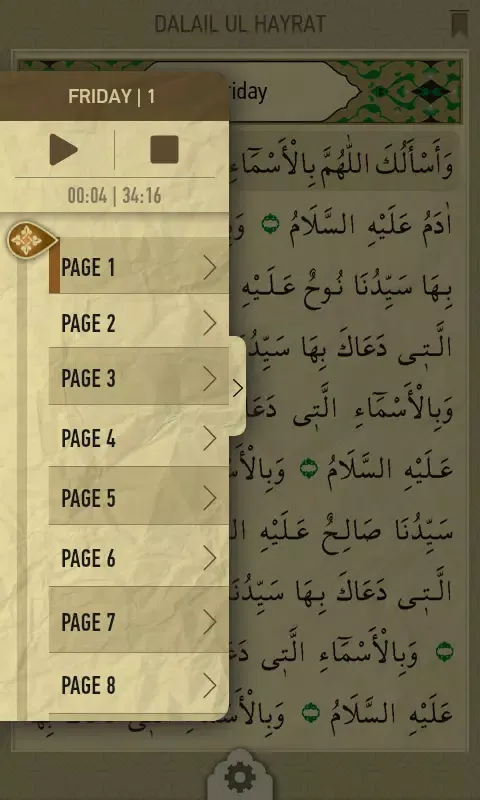 DALAIL UL HAYRAT
riday
FRIDAY | 1
00:04 | 34:16
PAGE 1
PAGE 2
PAGE 3
PAGE 4
PAGE 5
PAGE 6
PAGE 7
PAGE 8
وَأَسْأَلُكَ اللّٰهُمَّ بِالْأَسْمَٓاءِ
اٰدَمُ عَلَيْهِ السَّلَامُ
بِهَا سَيِّدُنَا نُوحٌ عَلَيْهِ
الَّتِى دَعَاكَ بِهَا سَيِّدُ
وَبِالْأَسْمَٓاءِ الَّتِى دَعَا
عَلَيْهِ السَّلَامُ وَبِالْأَ
سَيِّدُنَا صَالِحٌ عَلَيْهِ
الَّتِى دَعَاكَ بِهَا سَيِّدُنَا
وَبِالْأَسْمَٓاءِ الَّتِى دَعَ
عَلَيْهِ السَّلَامُ وَبِالْأَ